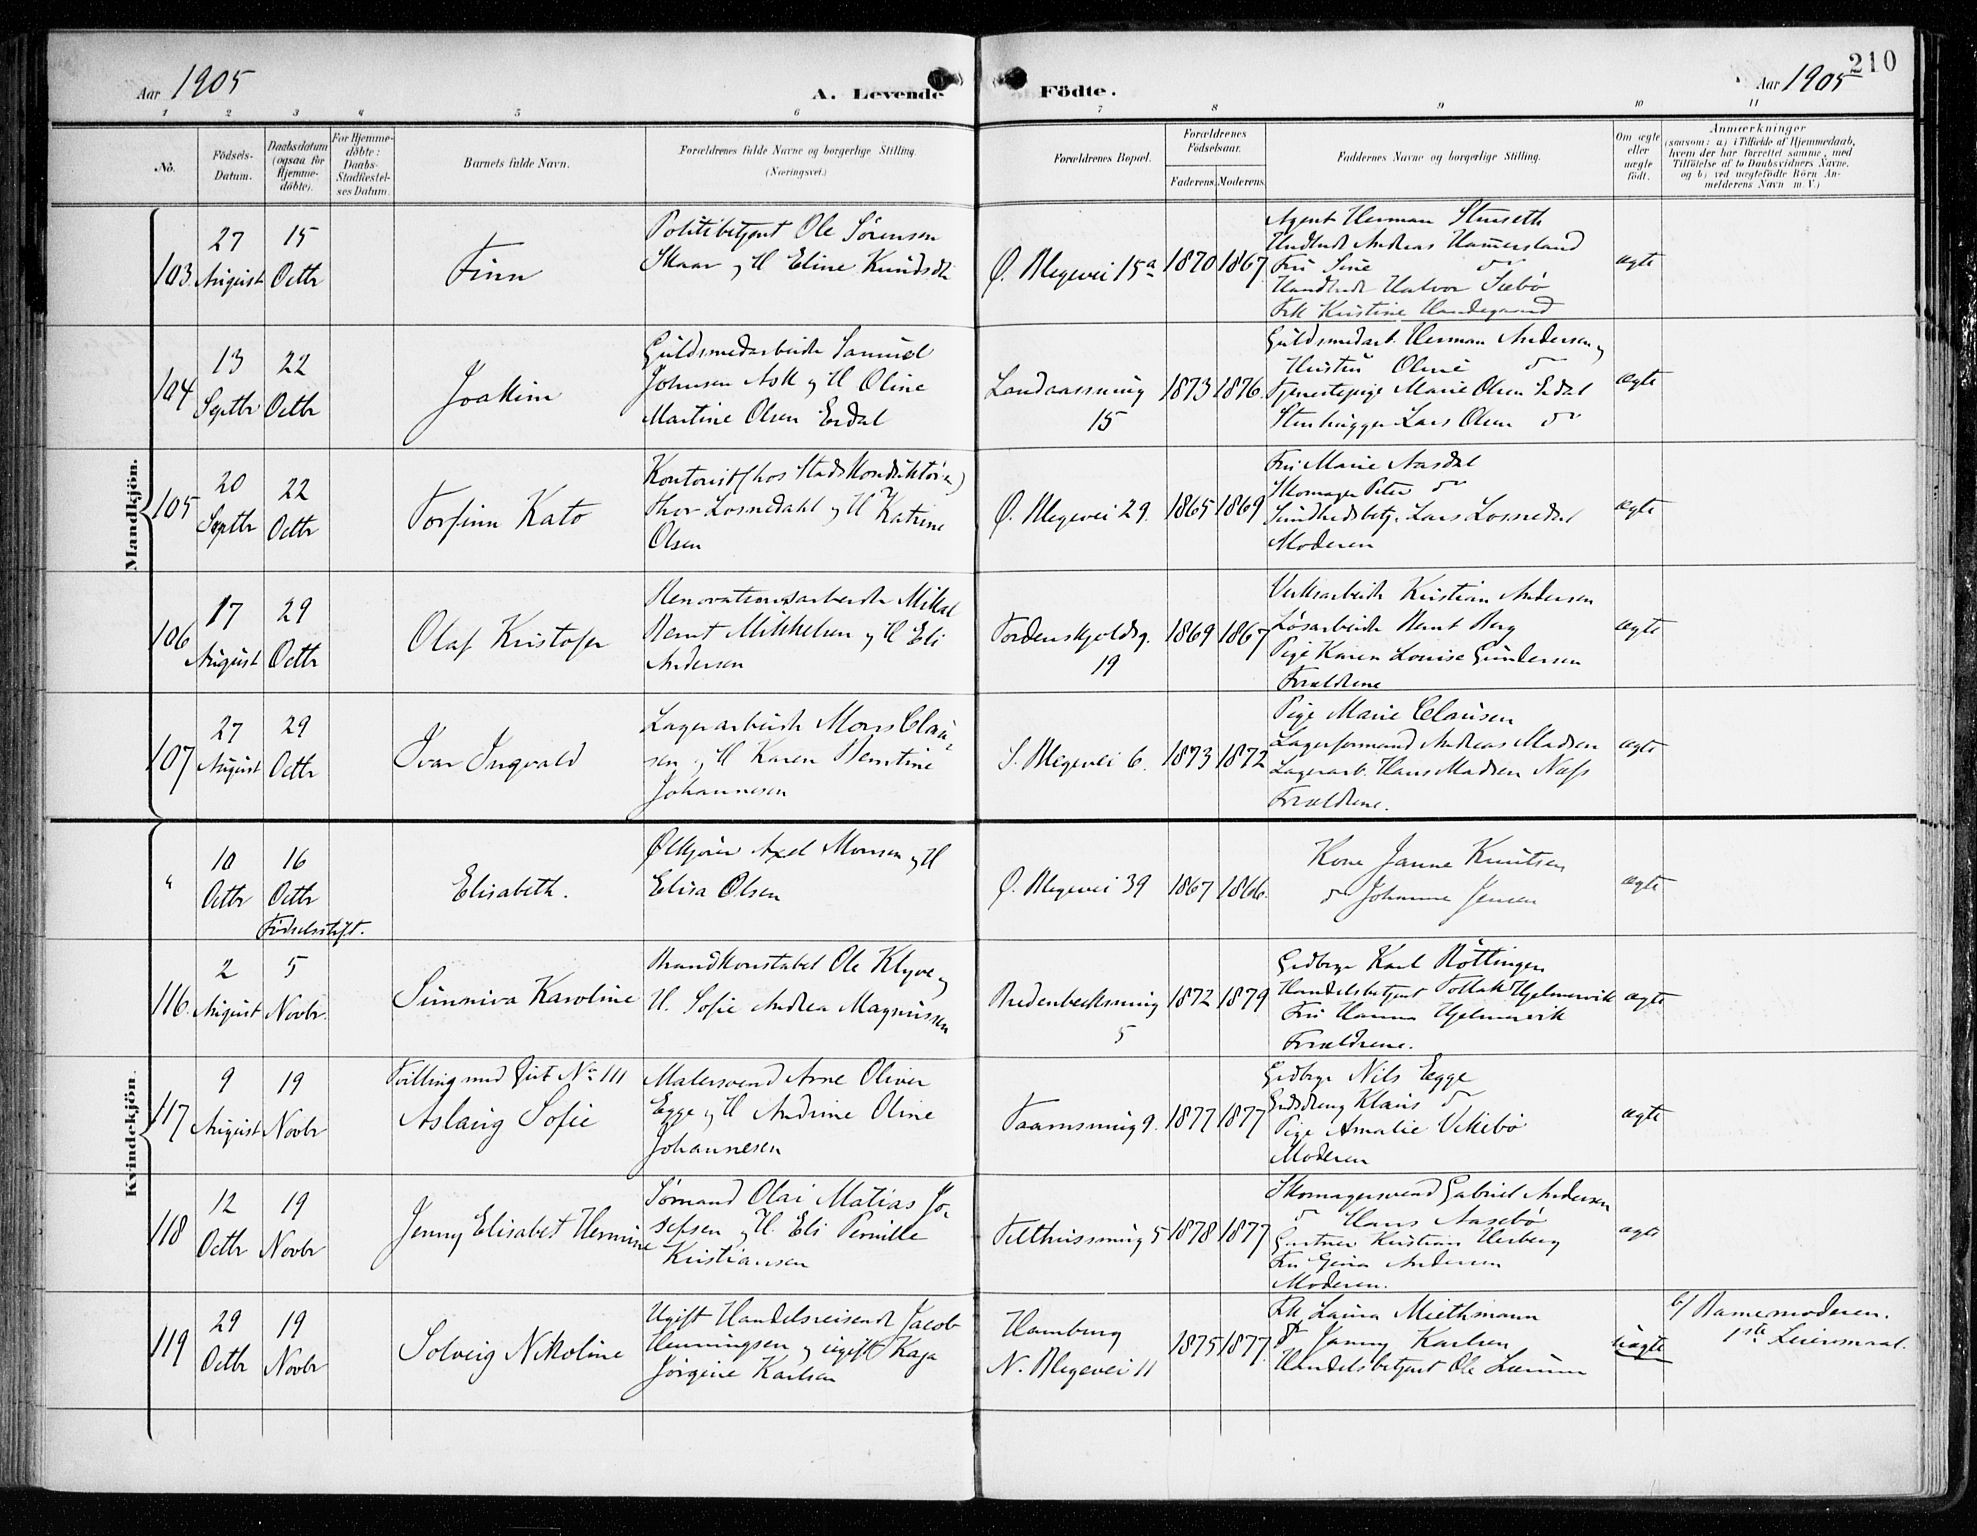 210
Aar 1905
A. Levende
Födte.
Aar 1905
1 2 3 4 5 6 7 8 9 10 11
No.
Födsels-
Datum.
Daabsdatum
(ogsaa for
Hjemme-
döbte).
For Hjemme-
döbte:
Daabs-
Stadfæstel-
ses Datum.
Barnets fulde Navn.
Forældrenes fulde Navne og borgerlige Stilling.
(Næringsvei.)
Forældrenes Bopæl.
Forældrenes
Födselsaar.
Faderens. Moderens.
Faddernes Navne og borgerlige Stilling.
Om ægte
eller
uægte
födt.
Anmærkninger
(saasom: a) i Tilfælde af Hjemmedaab,
hvem der har forrettet samme, med
Tilföielse af to Daabsvidners Navne,
og b) ved uægtefödte Börn An-
melderens Navn m. V.)
Mandkjön.
103
27
August
15
Octbr
Finn
Politibetjent Ole Sørensen
Skaar og H Eline Knudsdtr
Ø. Blegevei 15a
1870
1867
Agent Herman Stenseth
Andreas Hammersland
Fru Sine do
Halvor Sæbø
Frk Kristine Handegaard
ægte
104
13
Septbr
22
Octbr
Joakim
Guldsmedarbeider Samuel
Johnsen Ask og H Oline
Martine Olsen Erdal
Landaassmug
15
1873
1876.
Guldsmedarb. Herman Andersen og
Hustru Oline do
Tjenestepige Marie Olsen Erdal
Stenhugger Lars Olsen do
ægte
105
20
Septbr
22
Octbr
Torfinn Kato
Kontorist (hos Stadskonduktøren)
Thor Losnedahl og H Katrine
Olsen
Ø. Blegevei 29.
1865
1869
Fru Marie Aasdal
Skomager Peter do
Sundhedsbetj. Lars Losnedal
Moderen
ægte
106
17
August
29
Octbr
Olaf Kristofer
Renovationsarbeider Mikal
Bernt Mikkelsen og H Eli
Andersen
Tordenskjoldsg.
19
1869
1867
Verksarbeider Kristian Andersen
Løsarbeider Bernt Berg
Pige Karen Louise Gundersen
Forældrene
ægte
107
27
August
29
Octbr
Ivar Ingvald
Lagerarbeider Mons Clau-
sen og H Karen Berntine
Johannesen
S. Blegevei 6.
1873
1872
Pige Marie Clausen
Lagerformand Andreas Madsen
Lagerarb. Hans Madsen Næss
Forældrene.
ægte
Kvindekjön.
"
10
Octbr
16
Octbr
Fødselsstift.
Elisabeth.
Ølkjører Axel Monsen og H
Elisa Olsen
Ø. Blegevei 39
1867
1866.
Kone Janne Knutsen
do Johanne Jensen
ægte
116.
2
August
5
Novbr.
Sunniva Karoline
Brandkonstabel Ole Klyve og
H. Sofie Andrea Magnussen
Bredenbecksmug
5
1872
1879
Grdbrgr Karl Røttingen
Handelsbetjent Tollak Hjelmervik
Fru Hanna Hjelmervik
Forældrene.
ægte
117
9
August
19
Novbr
Tvilling med Gut No 111
Aslaug Sofie
Malersvend Arne Oliver
Egge og H Andrine Oline
Johannesen
Taarnsmug 9.
1877
1877
Grdbrgr Nils Egge
Grdsdreng Klaus do
Pige Amalie Vikebø
Moderen
ægte
118
12
Octbr
19
Novbr
Jenny Elisabet Hermine
Sømand Olai Matias Jo-
sefsen og H. Eli Pernille
Kristiansen
Telthussmug 5
1878
1877
Skomagersvend Gabriel Andersen
do Hans Aasebø
Gartner Kristian Herberg
Fru Gina Andersen
Moderen.
ægte
119
29
Octbr
19
Novbr
Solveig Nikoline
Ugift Handelsreisende Jacob
Henningsen og ugift Kaja
Jørgine Karlsen
Hamburg
N. Blegevei 11
1875
1877
Frk Laura Miethmann
do Janny Karlsen
Handelsbetjent Ole
uægte
b/ Barnemoderen.
1ste Leiersmaal.